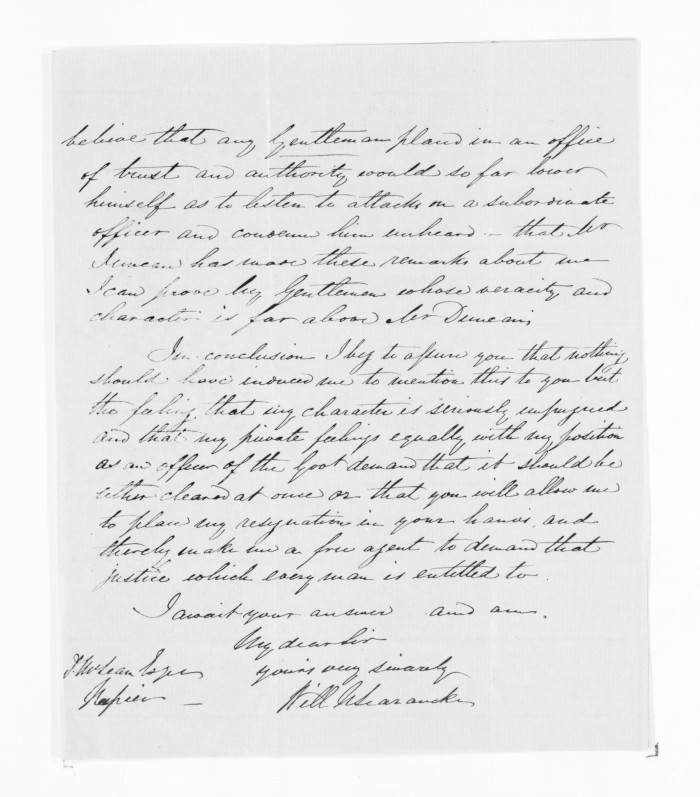 believe that any Gentleman placed in an office
of trust and authority would so far lower
himself as to listen to attacks on a subordinate
officer and condemn him unheard – that Mr
Duncan has made these remarks about me
I can prove by Gentlemen whose veracity and
character is far above Mr Duncan's
In conclusion I beg to assure you that nothing
should have induced me to mention this to you but
the feeling that my character is seriously impugned
and that my private feelings equally with my position
as an officer of the Govt demand that it should be
either cleared at once or that you will allow me
to place my resignation in your hands and
thereby make me a free agent to demand that
justice which every man is entitled to.
I await your answer and am.
My dear Sir
yours very sincerely
Will N Searancke
McLean Esqre
Napier –